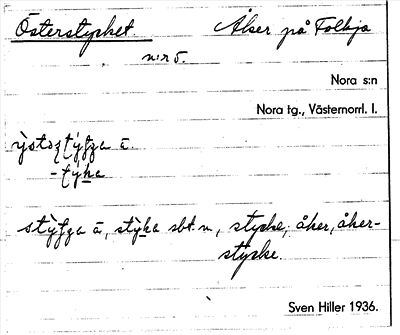 Österstycket Åker på Folkja
n:r 5.
Nora s:n
Nora tg., Västernorrl. l.
ä.
ä, stýka sbt. n, stycke; åker, åker-
stycke.
Sven Hiller 1936.